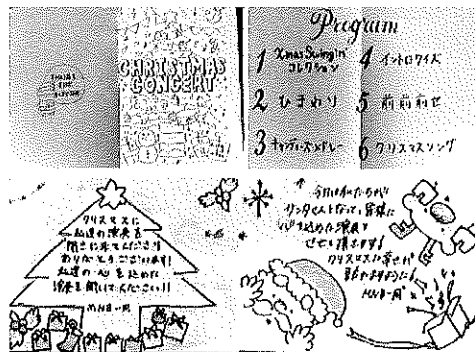 CHRISTMAS
CONCERT
Program
1 Xmas Swingin'
コレクション
2 ひまわり
3
4 イントロクイズ
5 前前前世
6 クリスマスソング
クリスマスに
私達の演奏を
聞きに来てくださり
ありがとうございます!
私達の心を込めた
演奏を聞いてください!!
MNB一同
今日は私たちが
サンタさんとなって、皆様に
心を込めた演奏を
させて頂きます!
クリスマスに幸せが
訪れますように!
MNB一同